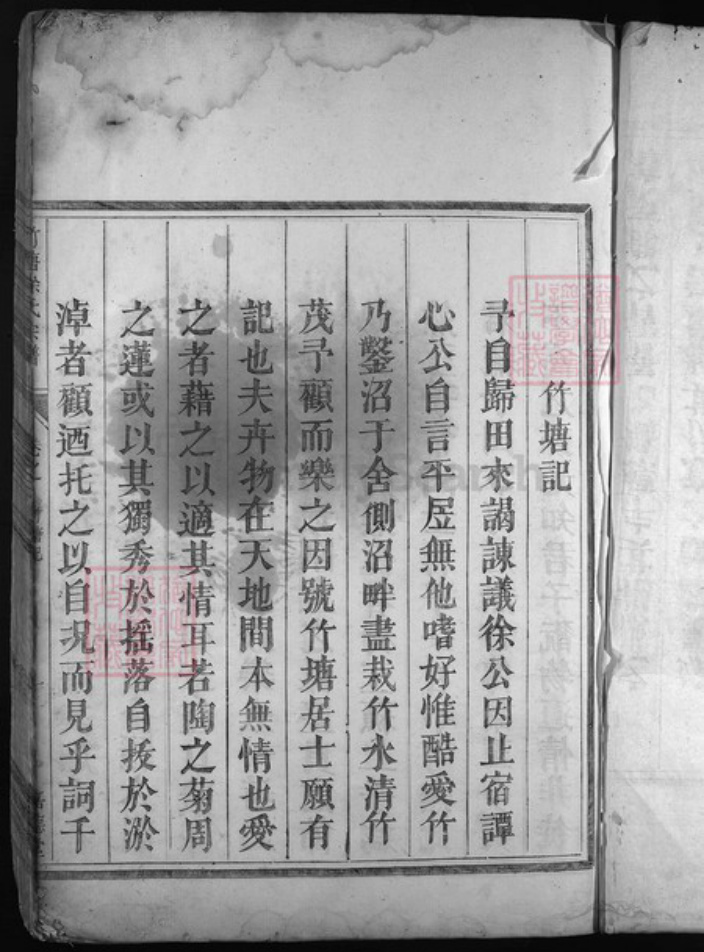 竹塘記
予自歸田來謁諫議徐公因止宿譚
心公自言平居無他嗜好惟酷愛竹
乃鑿沼于舍側沼畔盡栽竹水清竹
茂予顧而樂之因號竹塘居士願有
記也夫卉物在天地間本無情也愛
之者藉之以適其情耳若陶之菊周
之蓮或以其獨秀於搖落自拔於淤
淖者顧迺托之以自况而見乎詞千